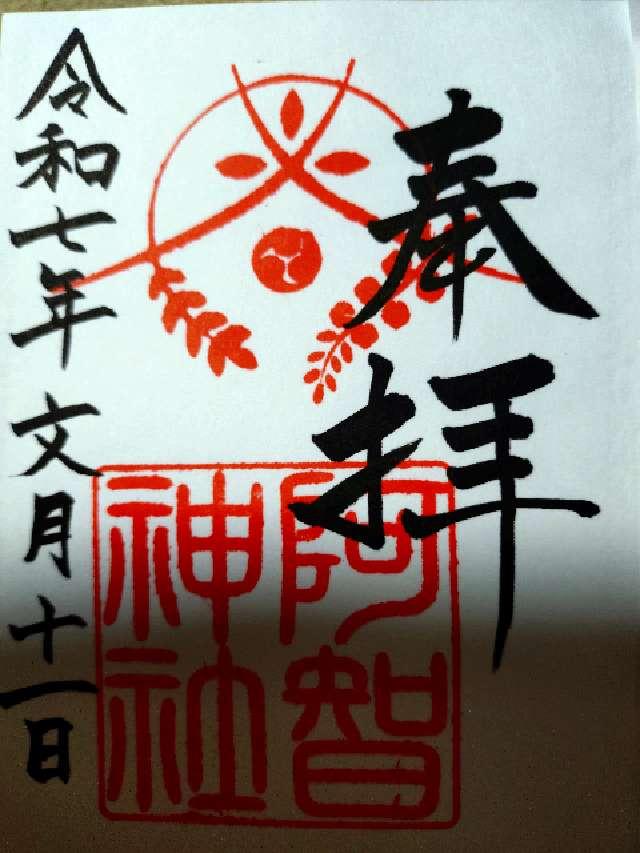 奉拝
阿智
神社
令和七年 文月十一日